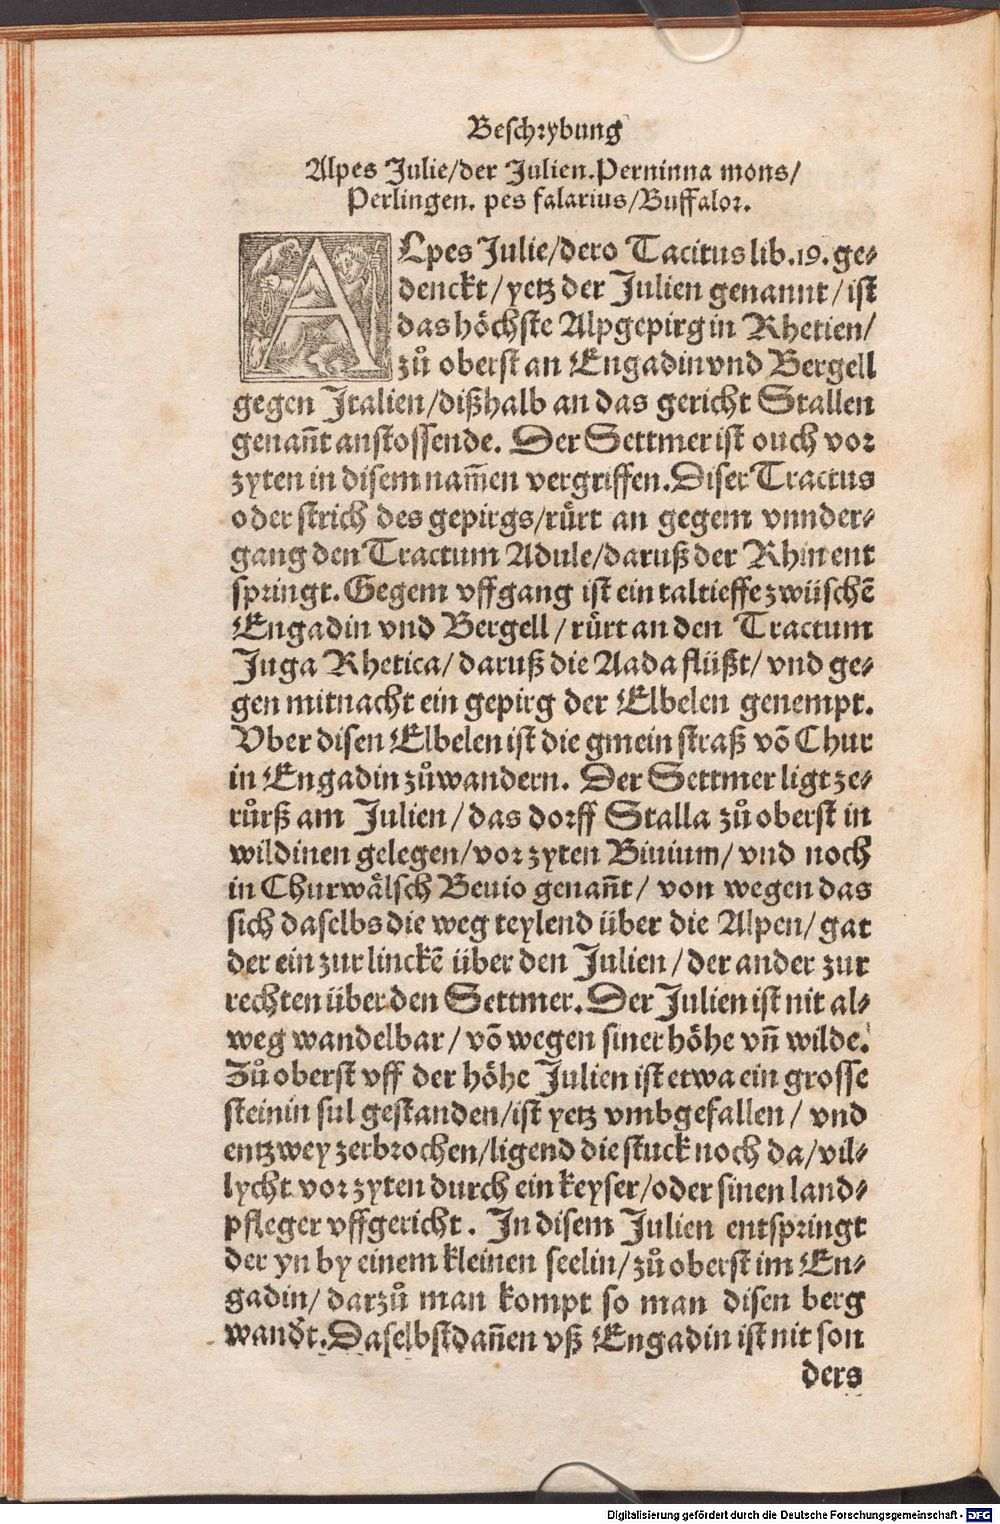 Beschrybung
Alpes Julie/der Julien. Perninna mons/
Perlingen. pes falarius/Buffalor.
ALpes Julie/dero Tacitus lib.19.ge-
denckt/yetz der Julien genannt/ist
das höchste Alpgepirg in Rhetien/
zů oberst an Engadin vnd Bergell
gegen Italien/dißhalb an das gericht Stallen
genañt anstossende. Der Settmer ist ouch vor
zyten in disem nam̄en vergriffen. Diser Tractus
oder strich des gepirgs/rürt an gegem vnnder-
gang den Tractum Adule/daruß der Rhin ent
springt. Gegem vffgang ist ein taltieffe zwüschē
Engadin vnd Bergell/rürt an den Tractum
Juga Rhetica/daruß die Aada flüßt/vnd ge-
gen mitnacht ein gepirg der Elbelen genempt.
Vber disen Elbelen ist die gmein straß vō Chur
in Engadin zůwandern. Der Settmer ligt ze-
růrß am Julien/das dorff Stalla zů oberst in
wildinen gelegen/vor zyten Biuium/vnd noch
in Churwälsch Beuio genañt/von wegen das
sich daselbs die weg teylend über die Alpen/gat
der ein zur linckē über den Julien/der ander zur
rechten über den Settmer. Der Julien ist nit al-
weg wandelbar/vō wegen siner höhe vñ wilde.
Zů oberst vff der höhe Julien ist etwa ein grosse
steinin sul gestanden/ist yetz vmbgefallen/vnd
entzwey zerbrochen/ligend die stuck noch da/vil-
lycht vor zyten durch ein keyser/oder sinen land-
pfleger vffgericht. In disem Julien entspringt
der yn by einem kleinen seelin/zů oberst im En-
gadin/darzů man kompt so man disen berg
wandt. Daselbst dañen vß Engadin ist nit son
ders
Digitalisierung gefördert durch die Deutsche Forschungsgemeinschaft - DFG